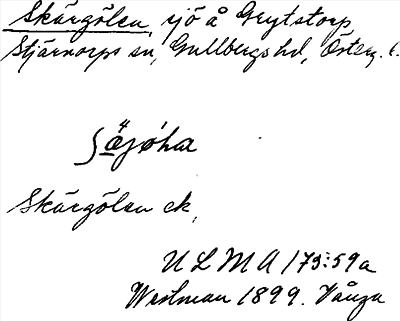 Skärgölen, sjö å Grytstorp
Stjärnorps sn, Gullbergs hd, Österg. l.
Skärgölen ek,
ULMA 173:59a
Westman 1899. Vånga